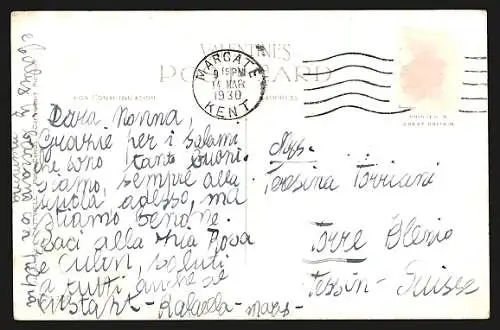 VALENTINE'S
POST CARD
FOR COMMUNICATION
ADDRESS
MARGATE
9 15 PM
14 MAR
1930
KENT
PRINTED IN
GREAT BRITAIN
Cara Nonna,
Grazie per i salami
che sono tanto buoni.
Siamo, sempre alla
scuola, adesso, ma
stiamo benone.
Baci alla Zia Rosa
e saluti
a tutti anche
Rafaella - Mars -
Teresina Torriani
Torre Blenio
Tessin - Suisse